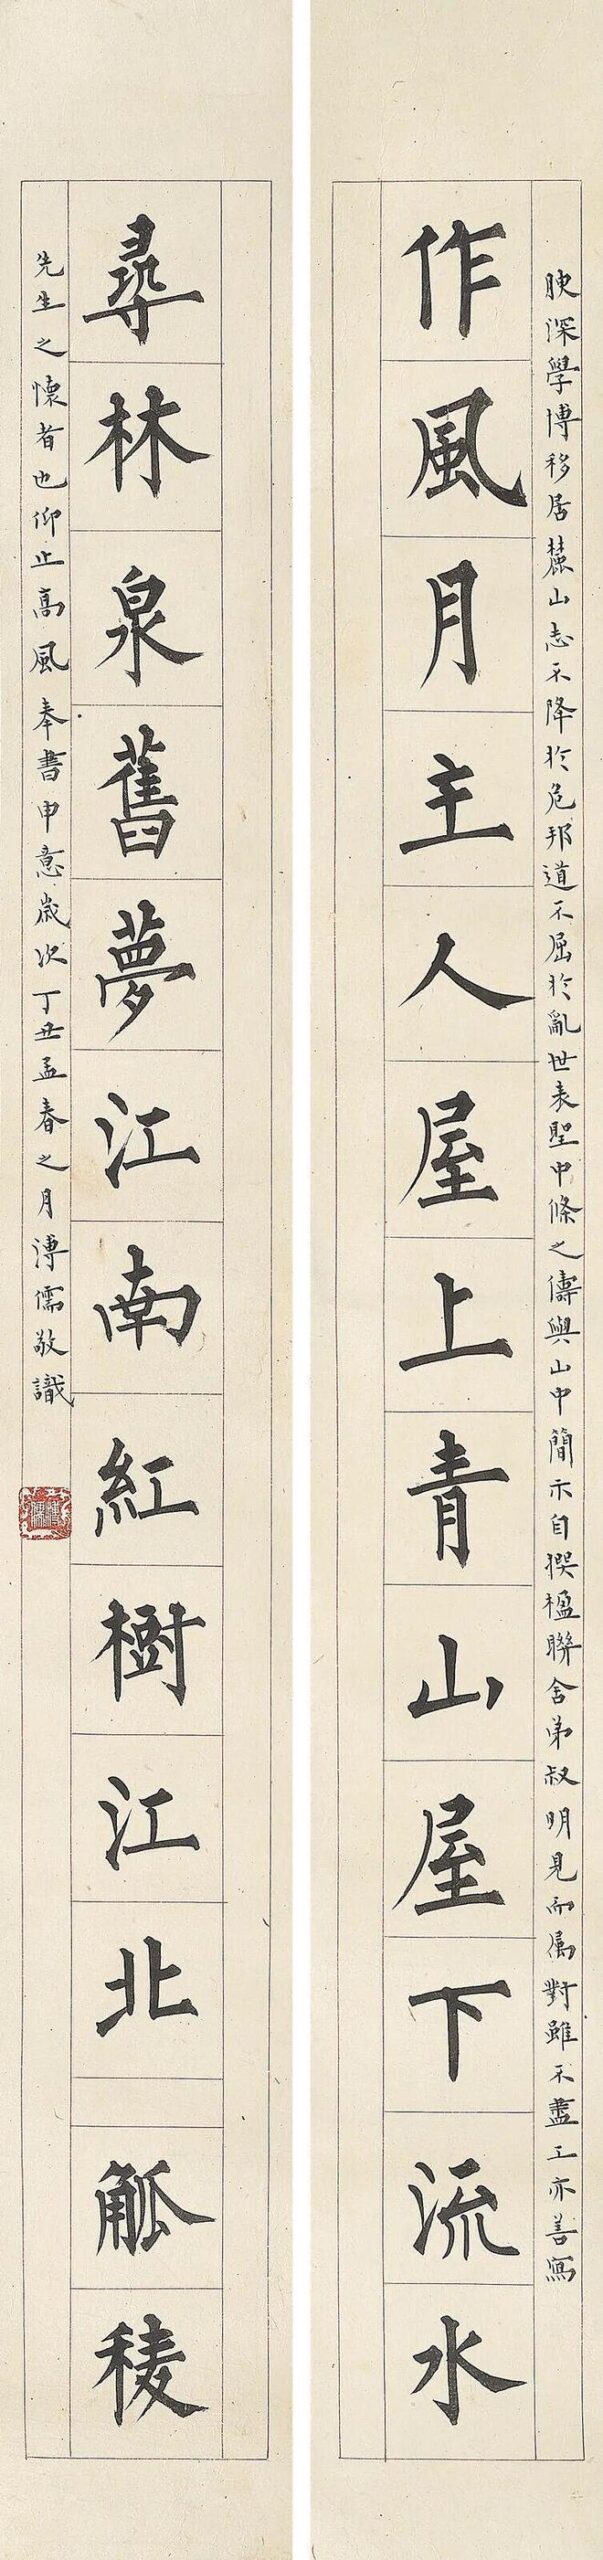 腴深學博移居麓山志不降於危邦道不屈於亂世表聖中條之儔與山中簡示自撰楹聯舍弟叔明見而屬對雖不盡工亦善寫
作風月主人屋上青山屋下流水
尋林泉舊夢江南紅樹江北觚稜
先生之懷者也仰止高風奉書申意歲次丁丑孟春之月溥儒敬識
溥儒